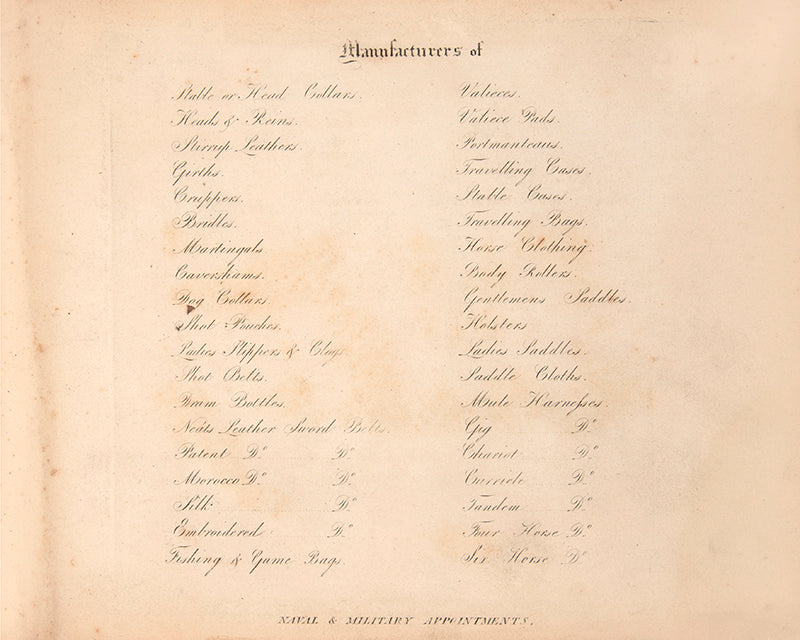 Manufacturers of
Stable or Head Collars.
Heads & Reins.
Stirrup Leathers.
Girths.
Cruppers.
Bridles.
Martingals
Cavershams.
Dog Collars.
Shot Pouches.
Ladies Slippers & Clogs
Shot Belts.
Dram Bottles.
Neats Leather Sword Belts.
Patent Do. Do.
Morocco Do. Do.
Silk Do.
Embroidered Do.
Fishing & Game Bags.
Valieces.
Valiece Pads.
Portmanteaus.
Travelling Cases.
Stable Cases.
Travelling Bags.
Horse Clothing.
Body Rollers.
Gentlemens Saddles.
Holsters
Ladies Saddles.
Saddle Cloths.
Mule Harneſses.
Gig Do.
Chariot Do.
Curricle Do.
Tandem Do.
Four Horse Do.
Six Horse Do
NAVAL & MILITARY APPOINTMENTS.